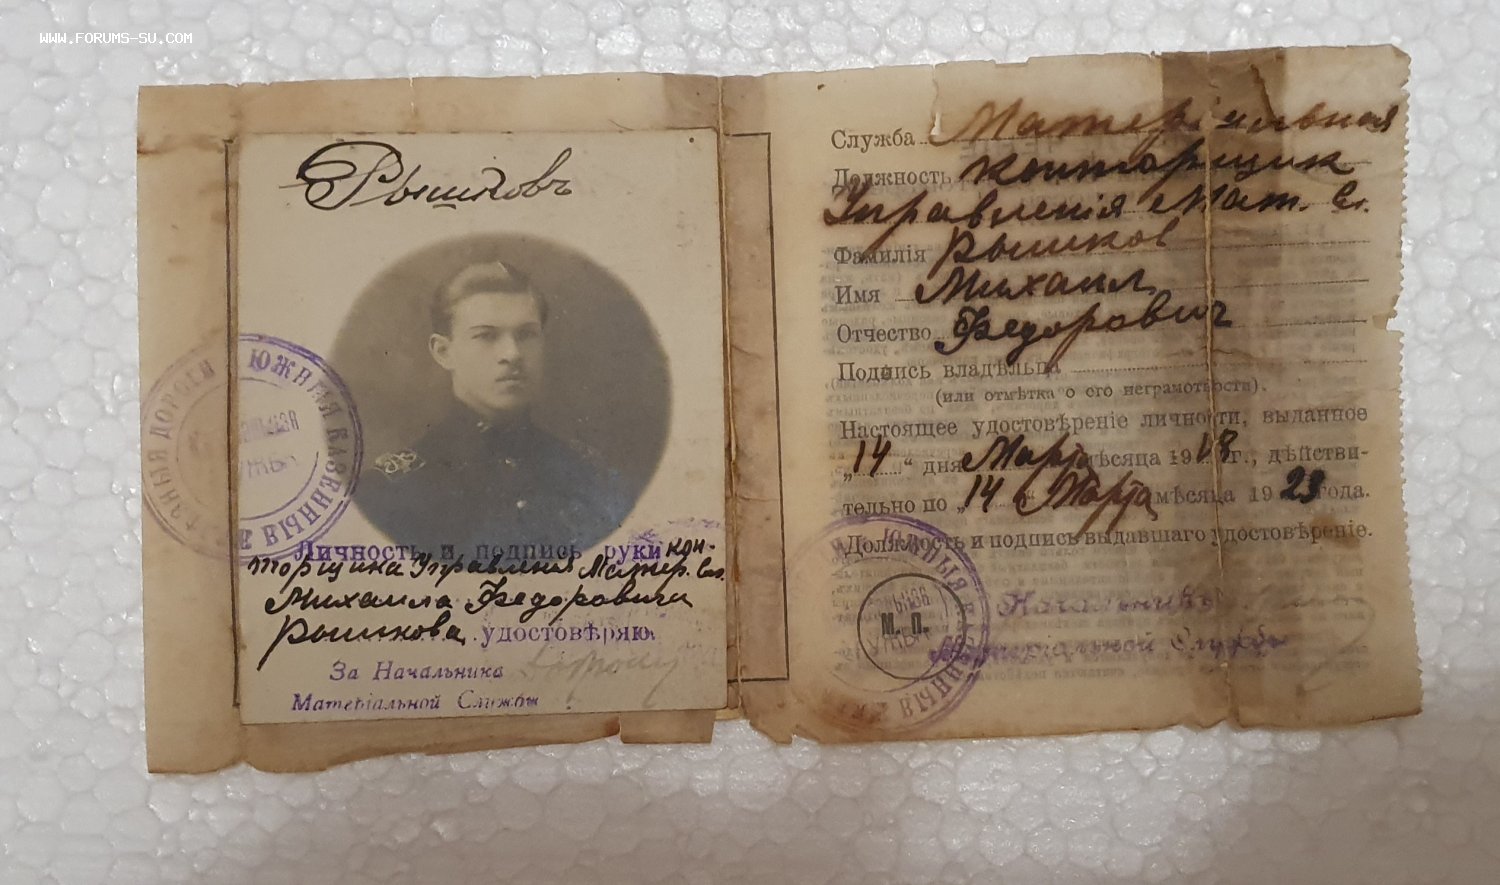 WWW.FORUMS-SU.COM
Рышковъ
ЮЖНЫЯ КАЗЕННЫЯ
Личность и подпись руки кон-
торщика Управленія Матер. Сл.
Михаила Федоровича
Рышкова удостовѣряю
За Начальника
Матеріальной Службы
Служба Матеріальная
Должность конторщик
Управленія Мат. Сл.
Фамилія Рышков
Имя Михаил
Отчество Федорович
Подпись владѣльца
(или отмѣтка о его неграмотности).
Настоящее удостовѣреніе личности, выданное
„14“ дня Марта мѣсяца 1918 г., дѣйстви-
тельно по „14“ Марта мѣсяца 1923 года.
Должность и подпись выдавшаго удостовѣреніе.
М. П.
Начальникъ
Матеріальной Службы